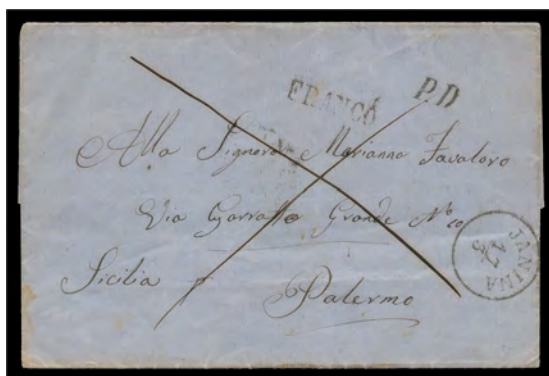 FRANCÓ
P.D
Alla Signora Marianna Favaloro
Via Garraffo Grande No 10
Sicilia p
Palermo
JANINA
17
3